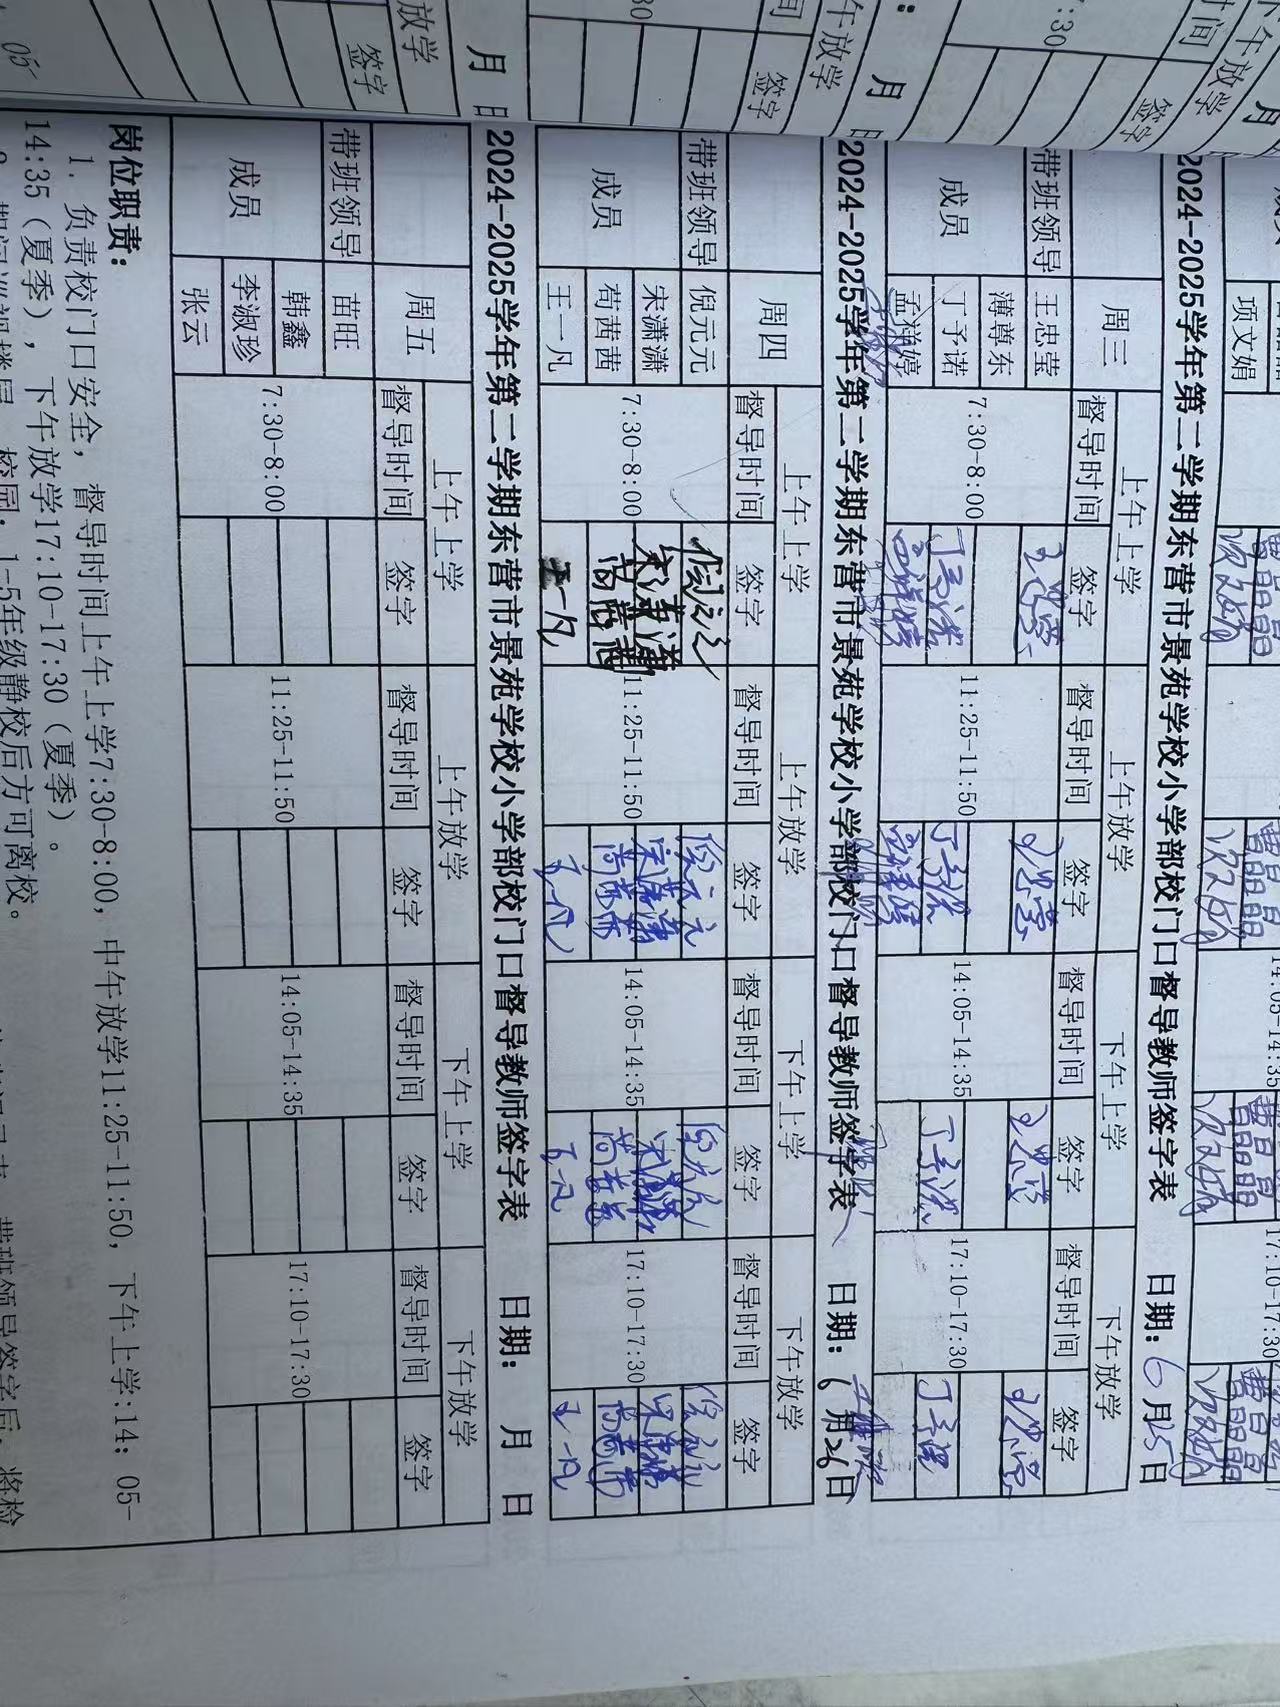 项文娟
2024-2025学年第二学期东营市景苑学校小学部校门口督导教师签字表 日期:6月25日
周三 上午上学 上午放学 下午上学 下午放学
督导时间 签字 督导时间 签字 督导时间 签字 督导时间 签字
带班领导 王忠莹 7:30-8:00 王忠莹 11:25-11:50 王忠莹 14:05-14:35 王忠莹 17:10-17:30 王忠莹
成员 薄尊东
丁予诺 丁予诺 丁予诺 丁予诺 丁予诺
孟祥婷 孟祥婷 孟祥婷
2024-2025学年第二学期东营市景苑学校小学部校门口督导教师签字表 日期:6月26日
周四 上午上学 上午放学 下午上学 下午放学
督导时间 签字 督导时间 签字 督导时间 签字 督导时间 签字
带班领导 倪元元 7:30-8:00 倪元元 11:25-11:50 倪元元 14:05-14:35 倪元元 17:10-17:30 倪元元
成员 宋潇潇 宋潇潇 宋潇潇 宋潇潇 宋潇潇
苟茜茜 苟茜茜 苟茜茜 苟茜茜 苟茜茜
王一凡 王一凡 王一凡 王一凡 王一凡
2024-2025学年第二学期东营市景苑学校小学部校门口督导教师签字表 日期: 月 日
周五 上午上学 上午放学 下午上学 下午放学
督导时间 签字 督导时间 签字 督导时间 签字 督导时间 签字
带班领导 苗旺 7:30-8:00 11:25-11:50 14:05-14:35 17:10-17:30
成员 韩鑫
李淑珍
张云
岗位职责:
1. 负责校门口安全，督导时间上午上学7:30-8:00，中午放学11:25-11:50，下午上学:14：05-
14:35（夏季），下午放学17:10-17:30（夏季）。
校园，1-5年级静校后方可离校。